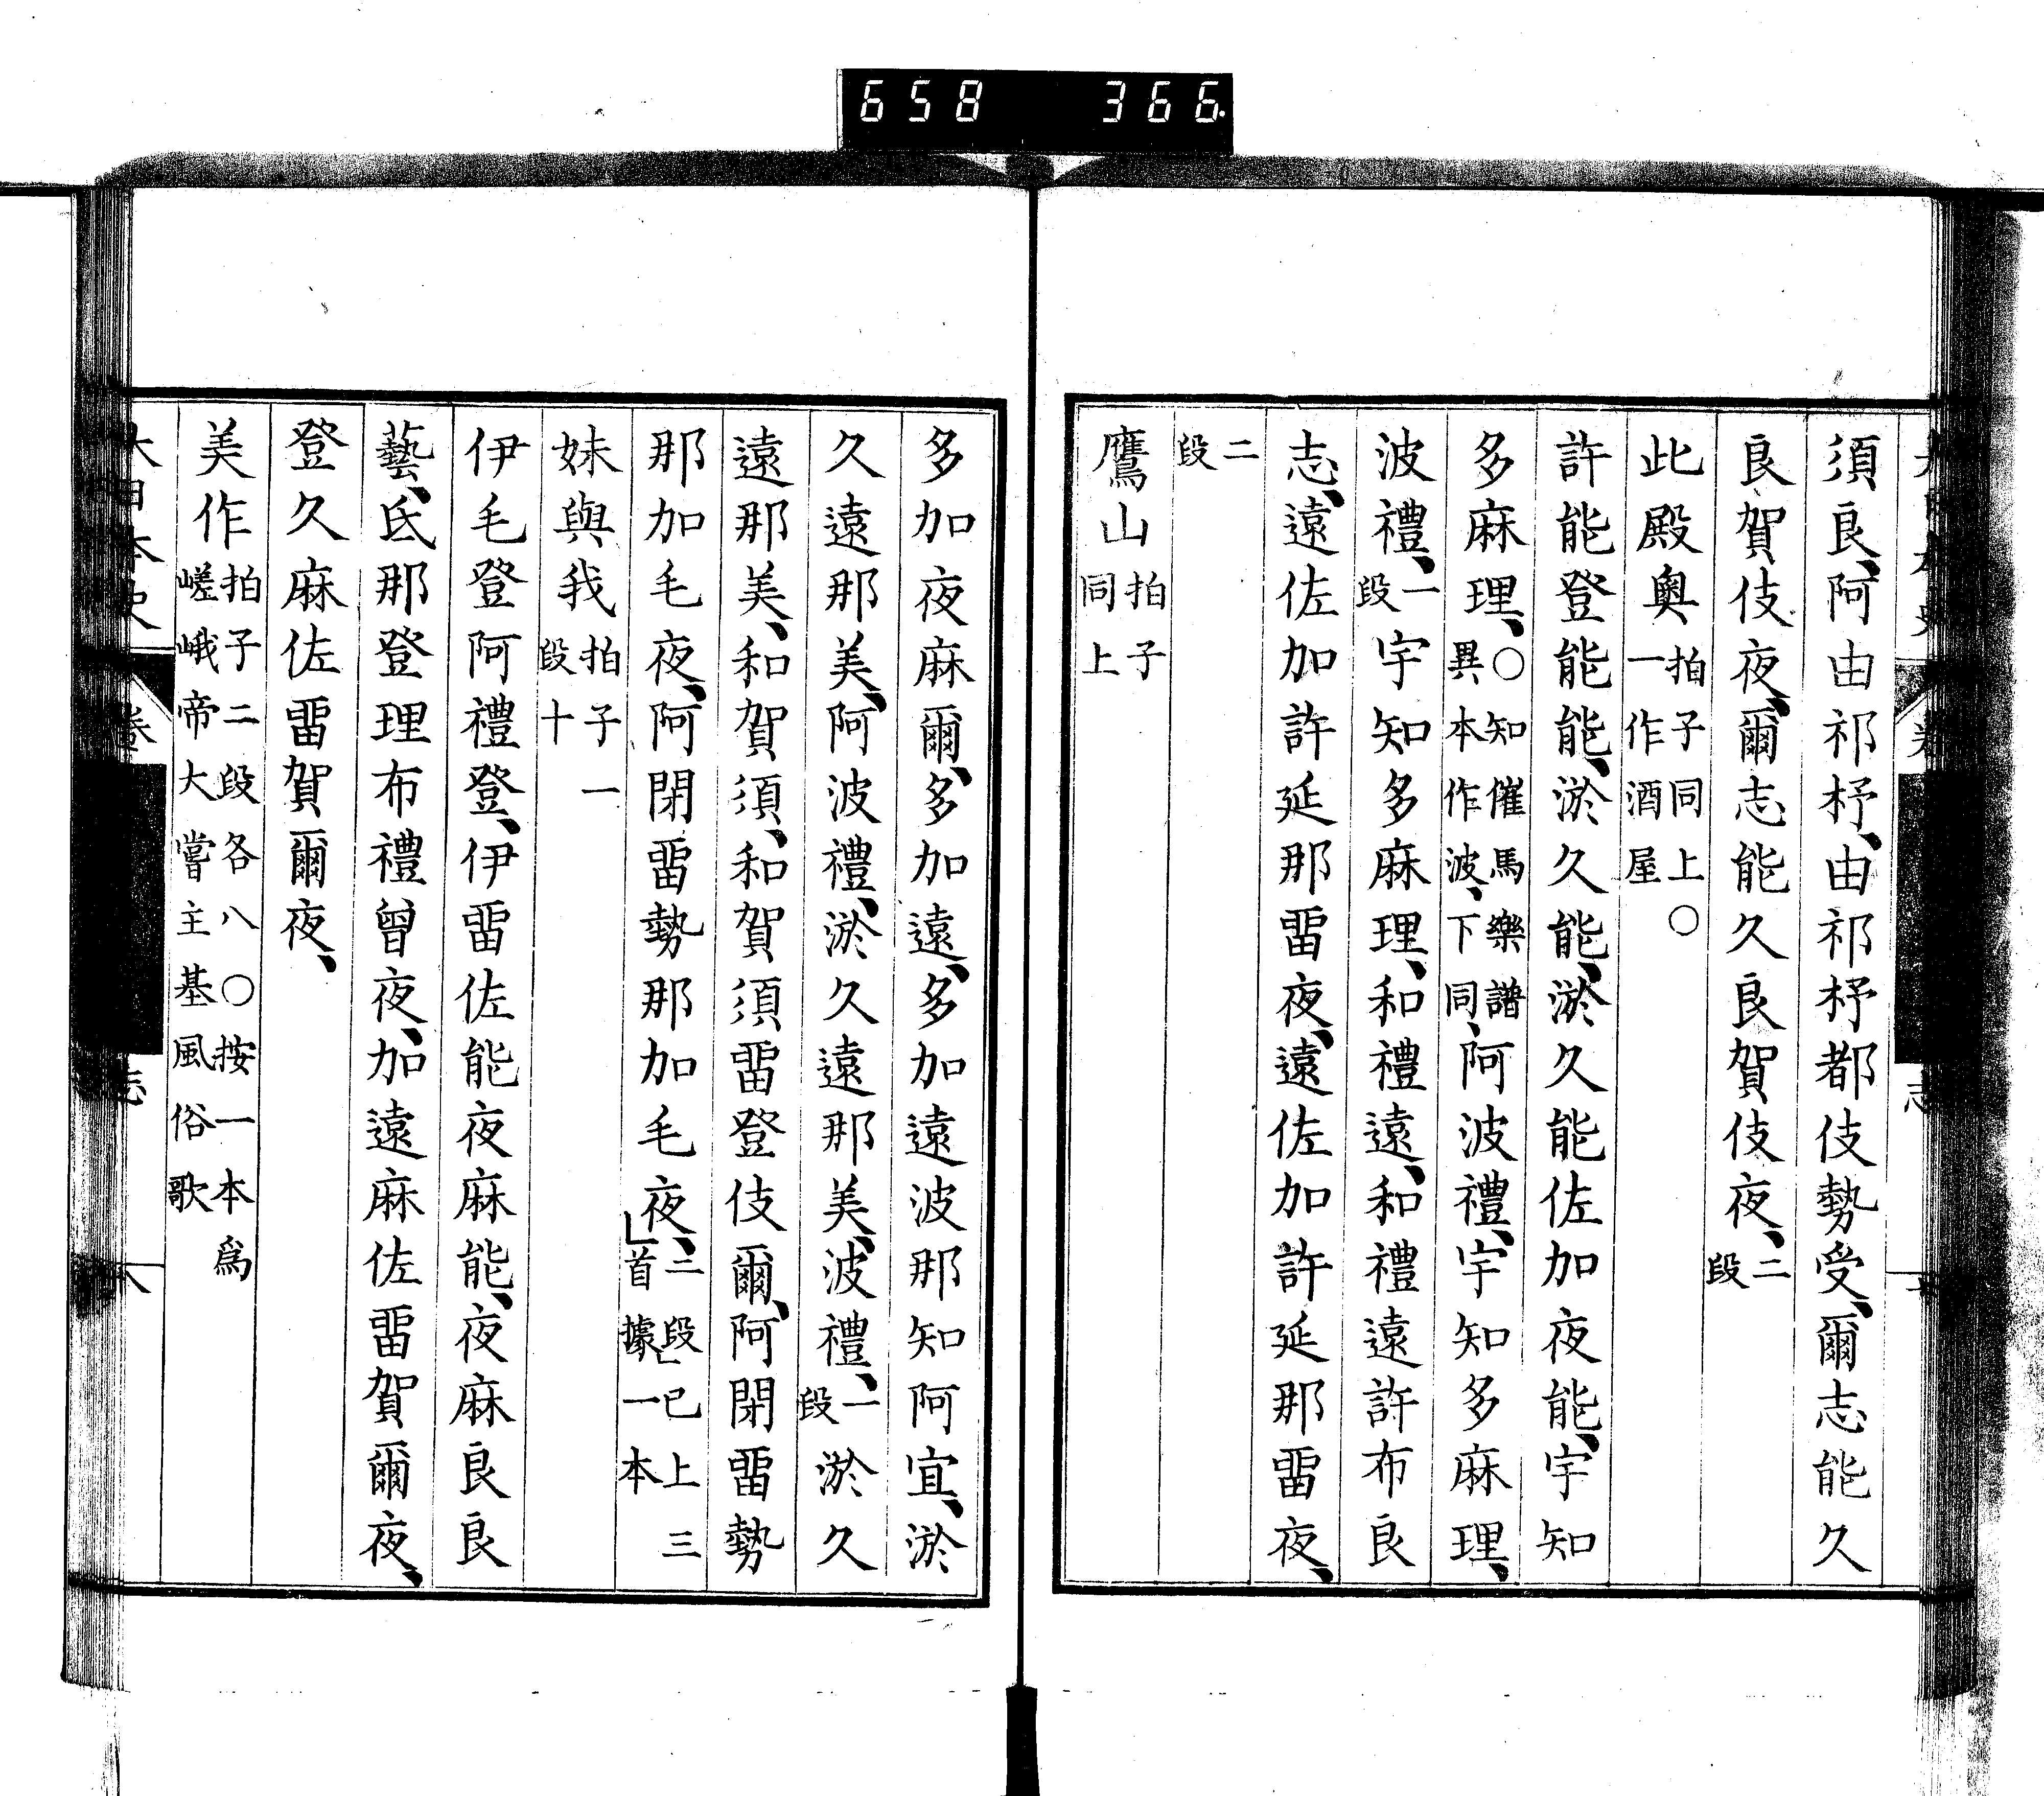 658 366
須良、阿由祁杼、由祁杼都伎勢受、爾志能久
良賀伎夜、爾志能久良賀伎夜、二段
此殿奧拍子同上○一作酒屋
許能登能能、淤久能、淤久能佐加夜能、宇知
多麻理、○知催馬樂譜異本作波、下同、阿波禮、宇知多麻理、
波禮、一段宇知多麻理、和禮遠、和禮遠許布良
志、遠佐加許延那畱夜、遠佐加許延那畱夜、
二段
鷹山拍子同上
多加夜麻爾、多加遠、多加遠波那知阿宜、淤
久遠那美、阿波禮、淤久遠那美、波禮、一段淤久
遠那美、和賀須、和賀須畱登伎爾、阿閉畱勢
那加毛夜、阿閉畱勢那加毛夜、二段已上三首據一本
妹與我拍子一段十
伊毛登阿禮登、伊畱佐能夜麻能、夜麻良良
藝、氐那登理布禮曾夜、加遠麻佐畱賀爾夜、
登久麻佐畱賀爾夜、
美作拍子二段各八○按一本爲嵯峨帝大嘗主基風俗歌
大日本史 卷 志 八